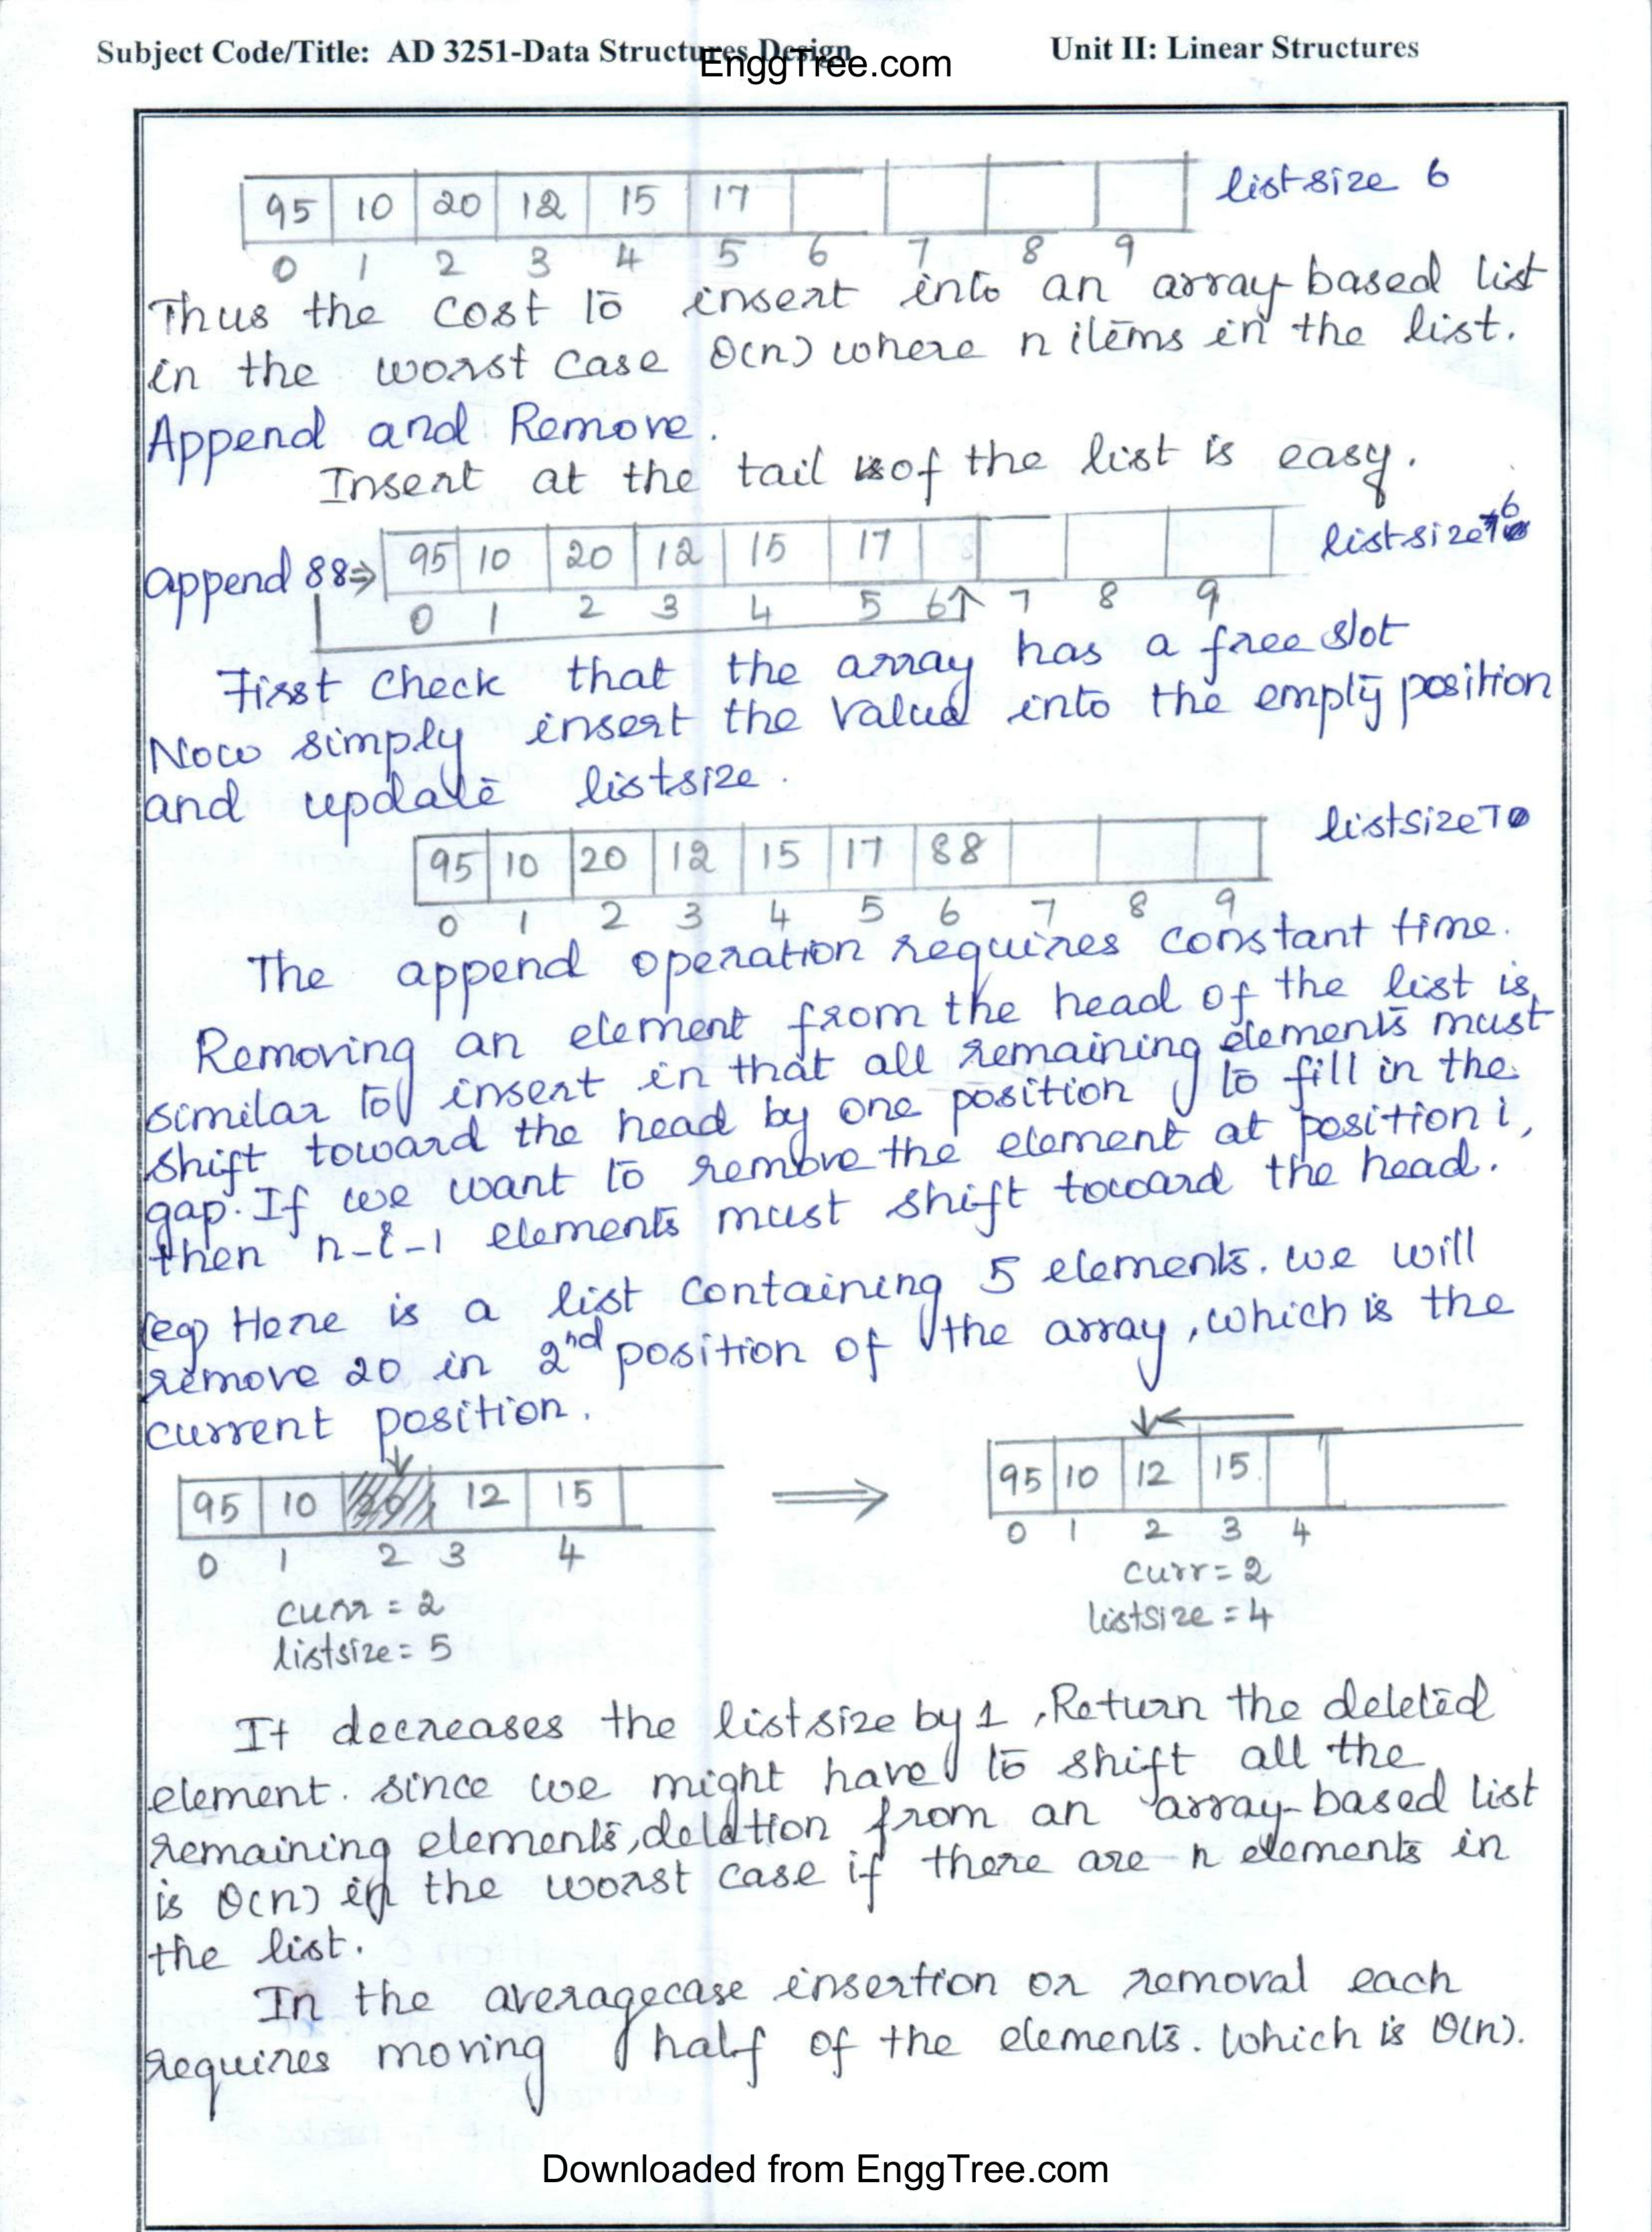 Subject Code/Title: AD 3251-Data Structures Design Unit II: Linear Structures
EnggTree.com
95 10 20 12 15 17 listsize 6
0 1 2 3 4 5 6 7 8 9
Thus the cost to insert into an array-based list
in the worst case θ(n) where n items in the list.
Append and Remove.
Insert at the tail of the list is easy.
append 88⇒ 95 10 20 12 15 17 listsize 6
0 1 2 3 4 5 6↑ 7 8 9
First check that the array has a free slot
Now simply insert the value into the empty position
and update listsize.
95 10 20 12 15 17 88 listsize 7
0 1 2 3 4 5 6 7 8 9
The append operation requires constant time.
Removing an element from the head of the list is
similar to insert in that all remaining elements must
shift toward the head by one position to fill in the
gap. If we want to remove the element at position i,
then n-i-1 elements must shift toward the head.
(eg) Here is a list containing 5 elements. we will
remove 20 in 2nd position of the array, which is the
current position.
95 10 20 12 15 ⇒ 95 10 12 15
0 1 2 3 4 0 1 2 3 4
curr = 2 curr = 2
listsize = 5 listsize = 4
It decreases the listsize by 1, Return the deleted
element. since we might have to shift all the
remaining elements, deletion from an array-based list
is θ(n) in the worst case if there are n elements in
the list.
In the averagecase insertion or removal each
requires moving half of the elements. which is θ(n).
Downloaded from EnggTree.com